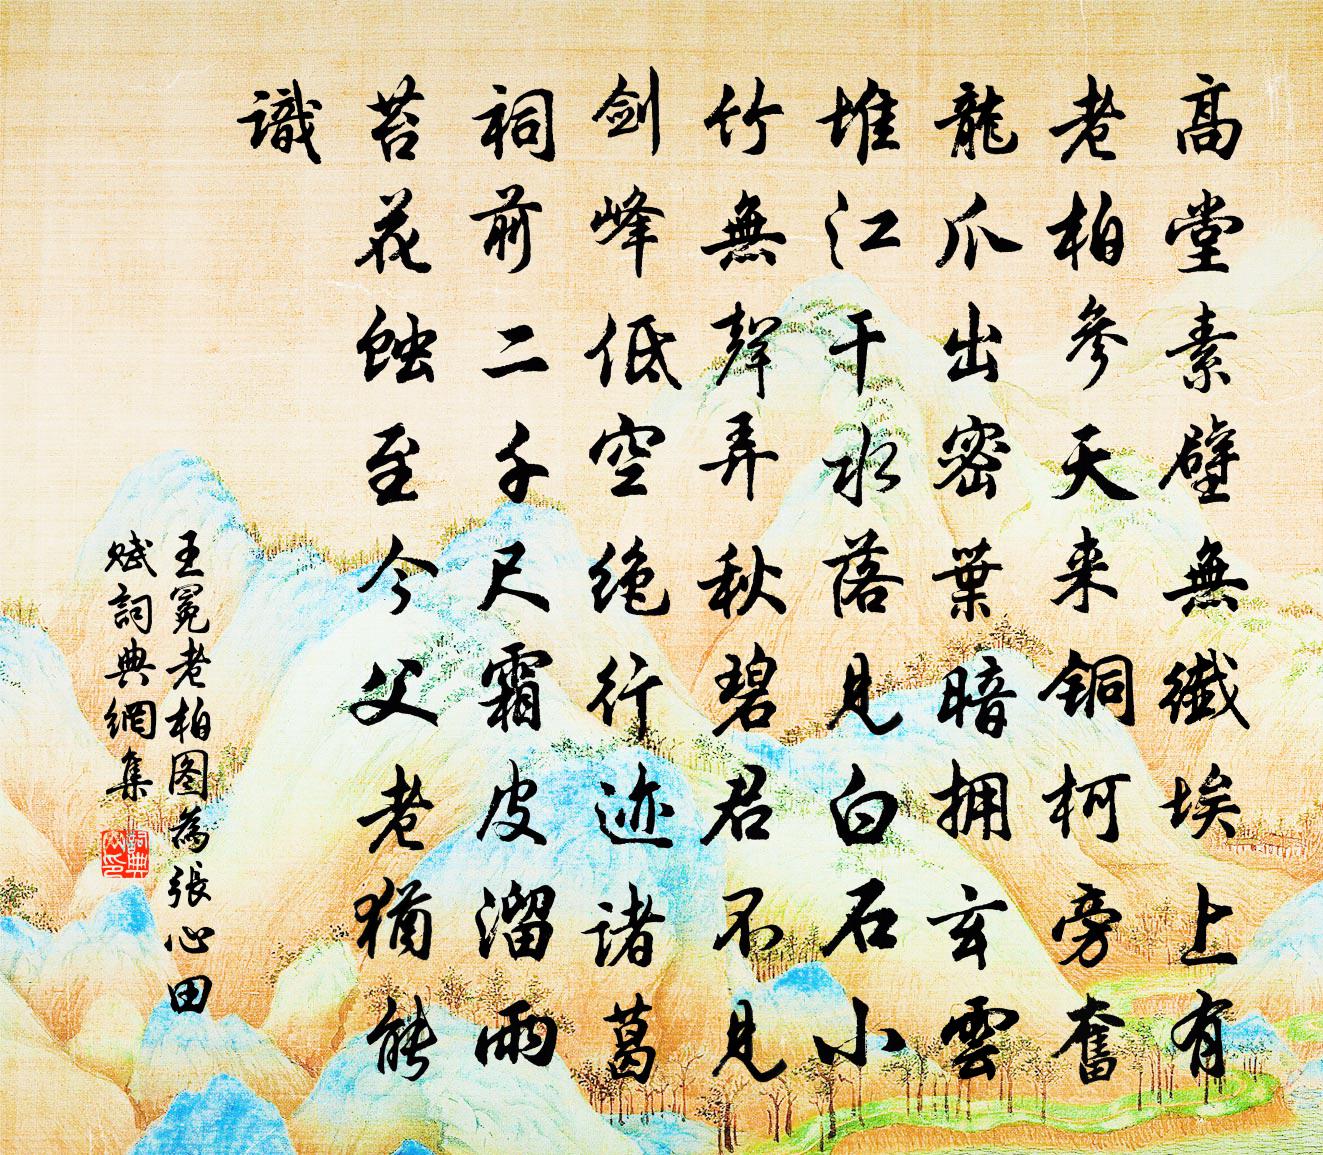 高堂素壁無纖埃上有
老柏參天来铜柯旁奮
龍爪出密葉暗拥玄雲
堆江干水落見白石小
竹無聲弄秋碧君不見
剑峰低空绝行迹诸葛
祠前二千尺霜皮溜雨
苔花蚀至今父老猶能
識
王冕老柏图為張心田
赋詞典網集
詞典網印